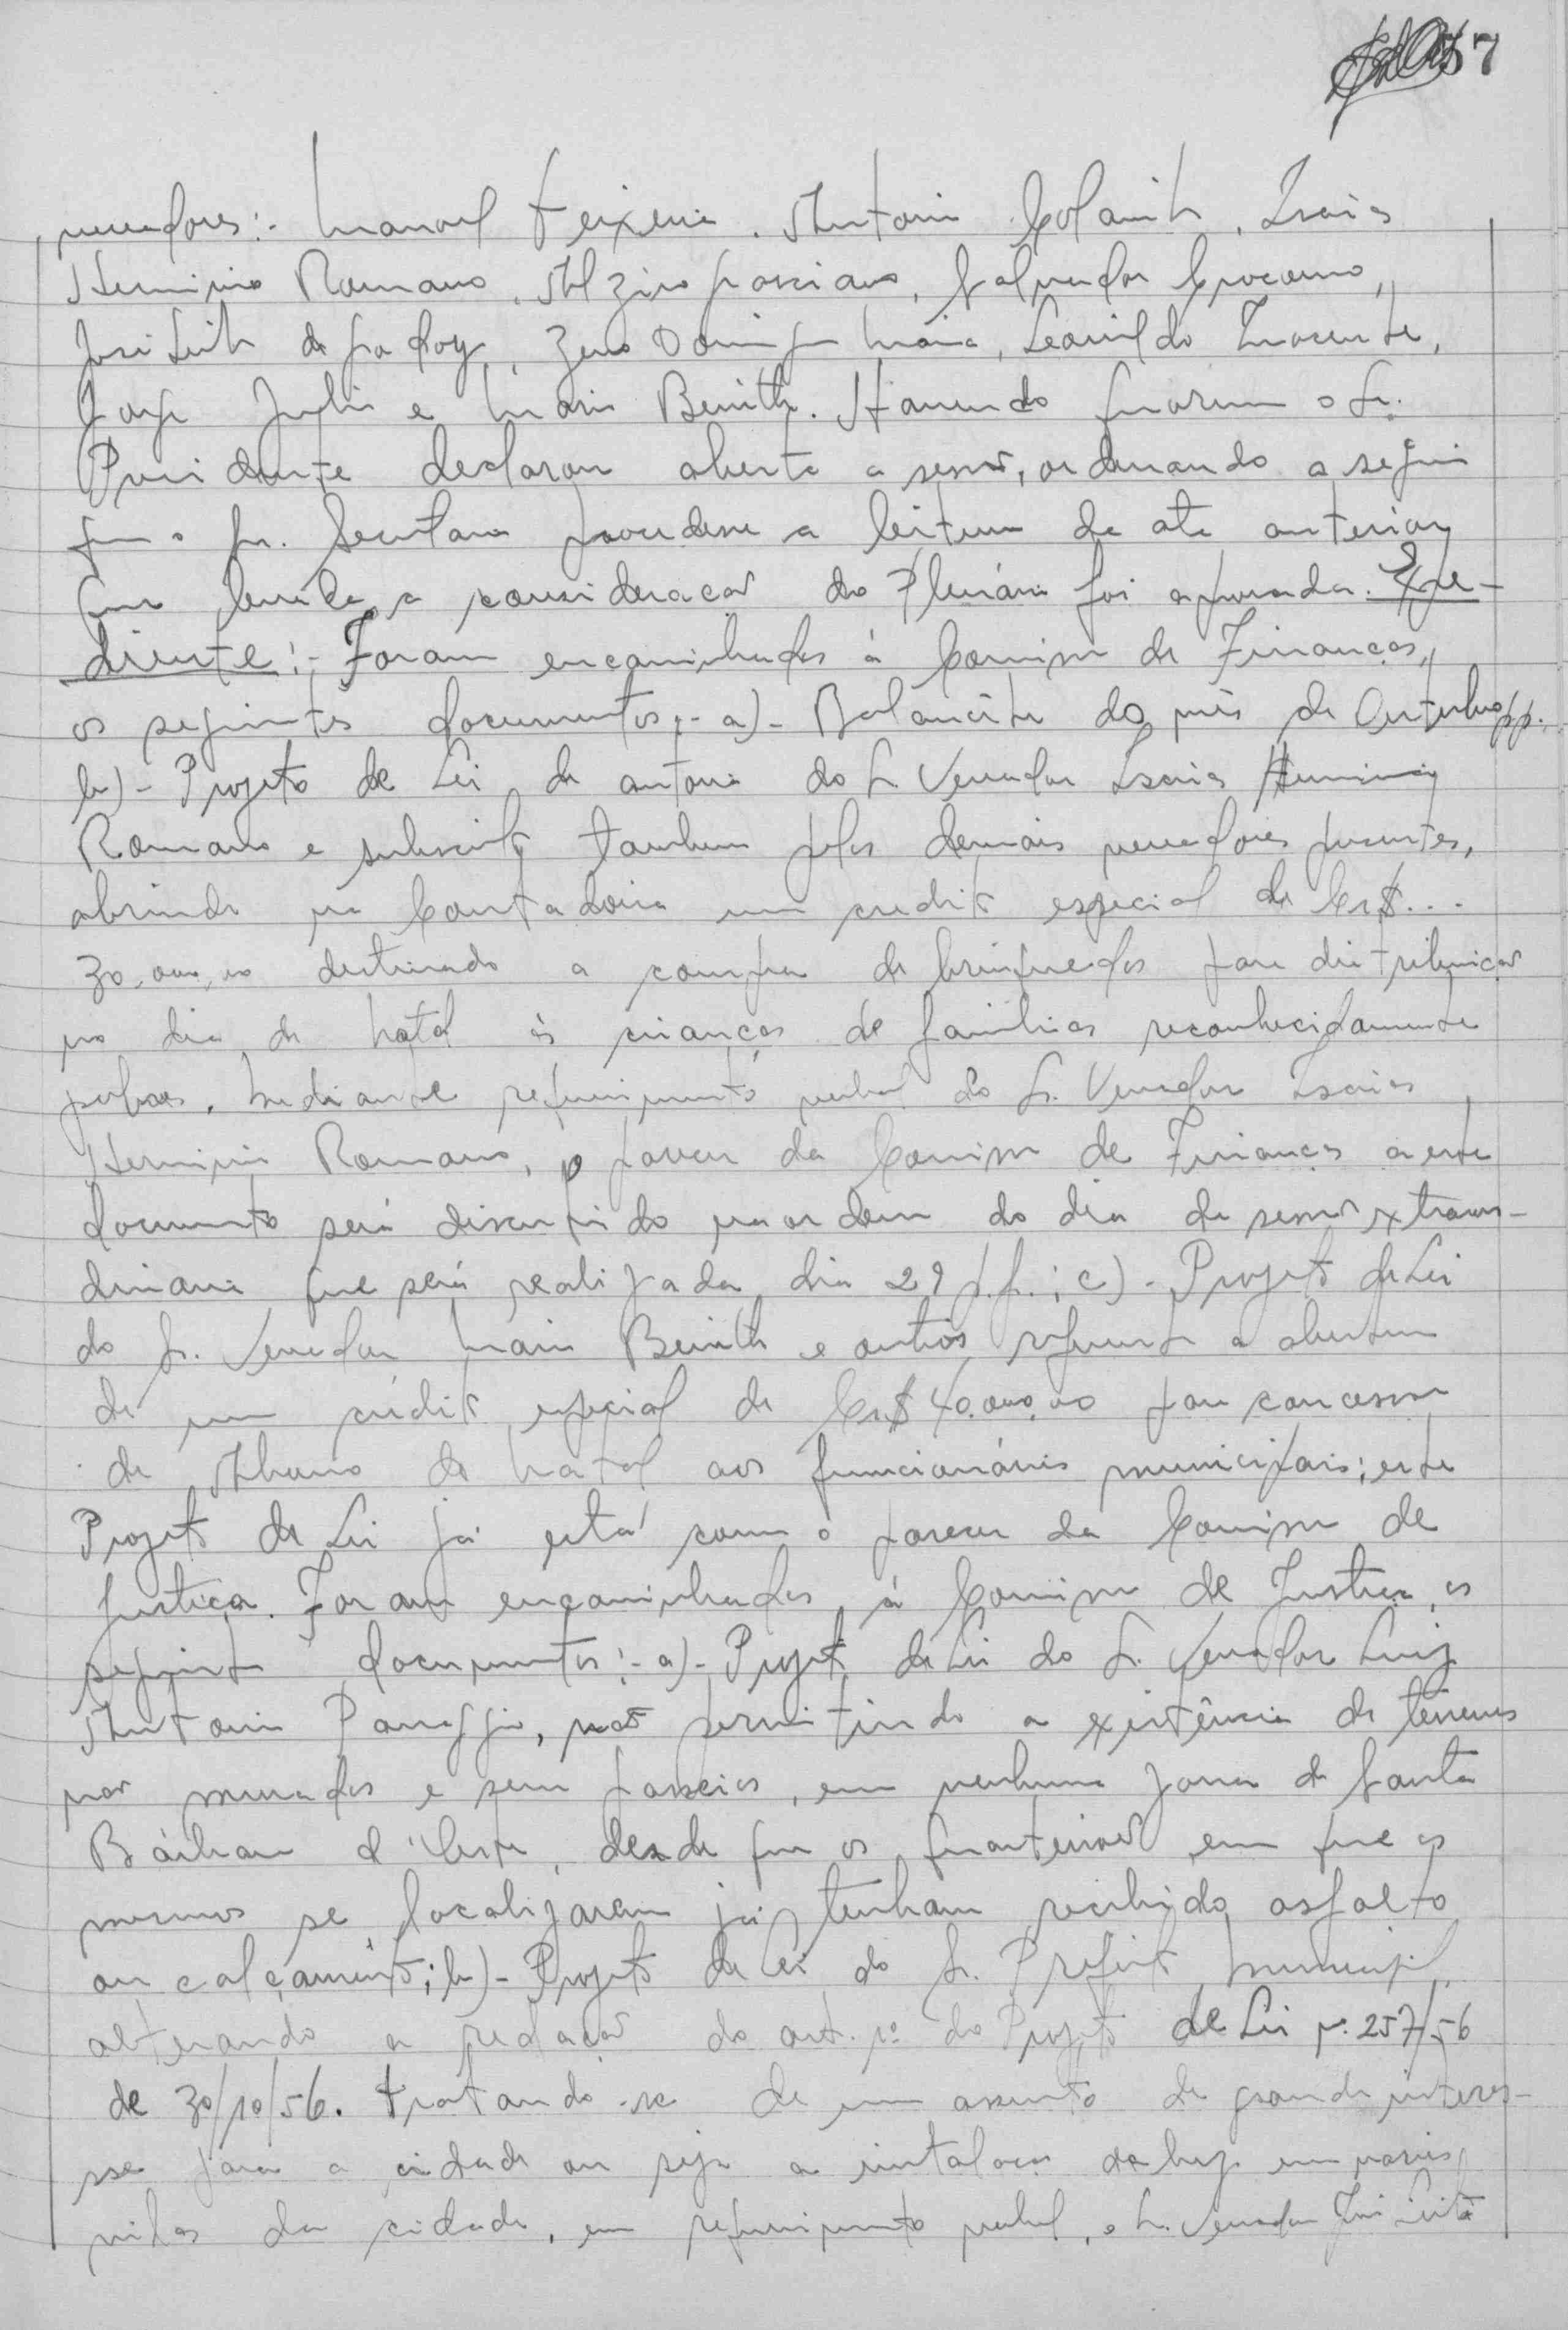 57
vereadores:- Manoel Teixeira, Antonio Colaniti, Isaias
Herminio Romano, Alziro Graciano, Salvador Crocomo,
José Leite de Godoy, Zeno Domingos Maia, Leonildo Inocente,
Jorge Julio e Mario Benitti. Havendo quorum o Sr.
Presidente declarou aberta a sessão, ordenando a seguir
que o Sr. Secretario procedesse a leitura da ata anterior
que levada a consideração do Plenário foi aprovada. Expe-
diente:- Foram encaminhados à Comissão de Finanças,
os seguintes documentos:- a)- Balancête do mês de Outubro pp.
b)- Projeto de Lei de autoria do Sr Vereador Isaias Herminio
Romano e subscrito tambem pelos demais vereadores presentes,
abrindo na Contadoria um credito especial de Cr$...
30.000,00 destinado a compra de brinquedos para distribuição
no dia de Natal às crianças de familias reconhecidamente
pobres. Mediante requerimento verbal do Sr. Vereador Isaias
Herminio Romano, o parecer da Comissão de Finanças a este
documento será discutido na ordem do dia da sessão extraor-
dinaria que será realizada dia 29 p.f.; c)- Projeto de Lei
do Sr. Vereador Mario Benitti e outros, referente a abertura
de um crédito especial de Cr$ 40.000,00 para concessão
de Abono de Natal aos funcionários municipais; este
Projeto de Lei já está com o parecer da Comissão de
Justiça. Foram encaminhados à Comissão de Justiça, os
seguinte documentos:- a)- Projeto de Lei do Sr. Vereador Luiz
Antonio Panaggio, não permitindo a existência de terrenos
não murados e sem passeios, em nenhuma zona de Santa
Bárbara d'Oeste, desde que os quarteirões em que os
mesmos se localizarem já tenham recebido asfalto
ou calçamento; b)- Projeto de Lei do Sr. Prefeito Municipal,
alterando a redação do art. 1º do Projeto de Lei n. 257/56
de 30/10/56. Tratando-se de um assunto de grande interes-
sse para a cidade ou seja a instalação de luz em varias
vilas da cidade, em requerimento verbal, o Sr. Vereador José Leite